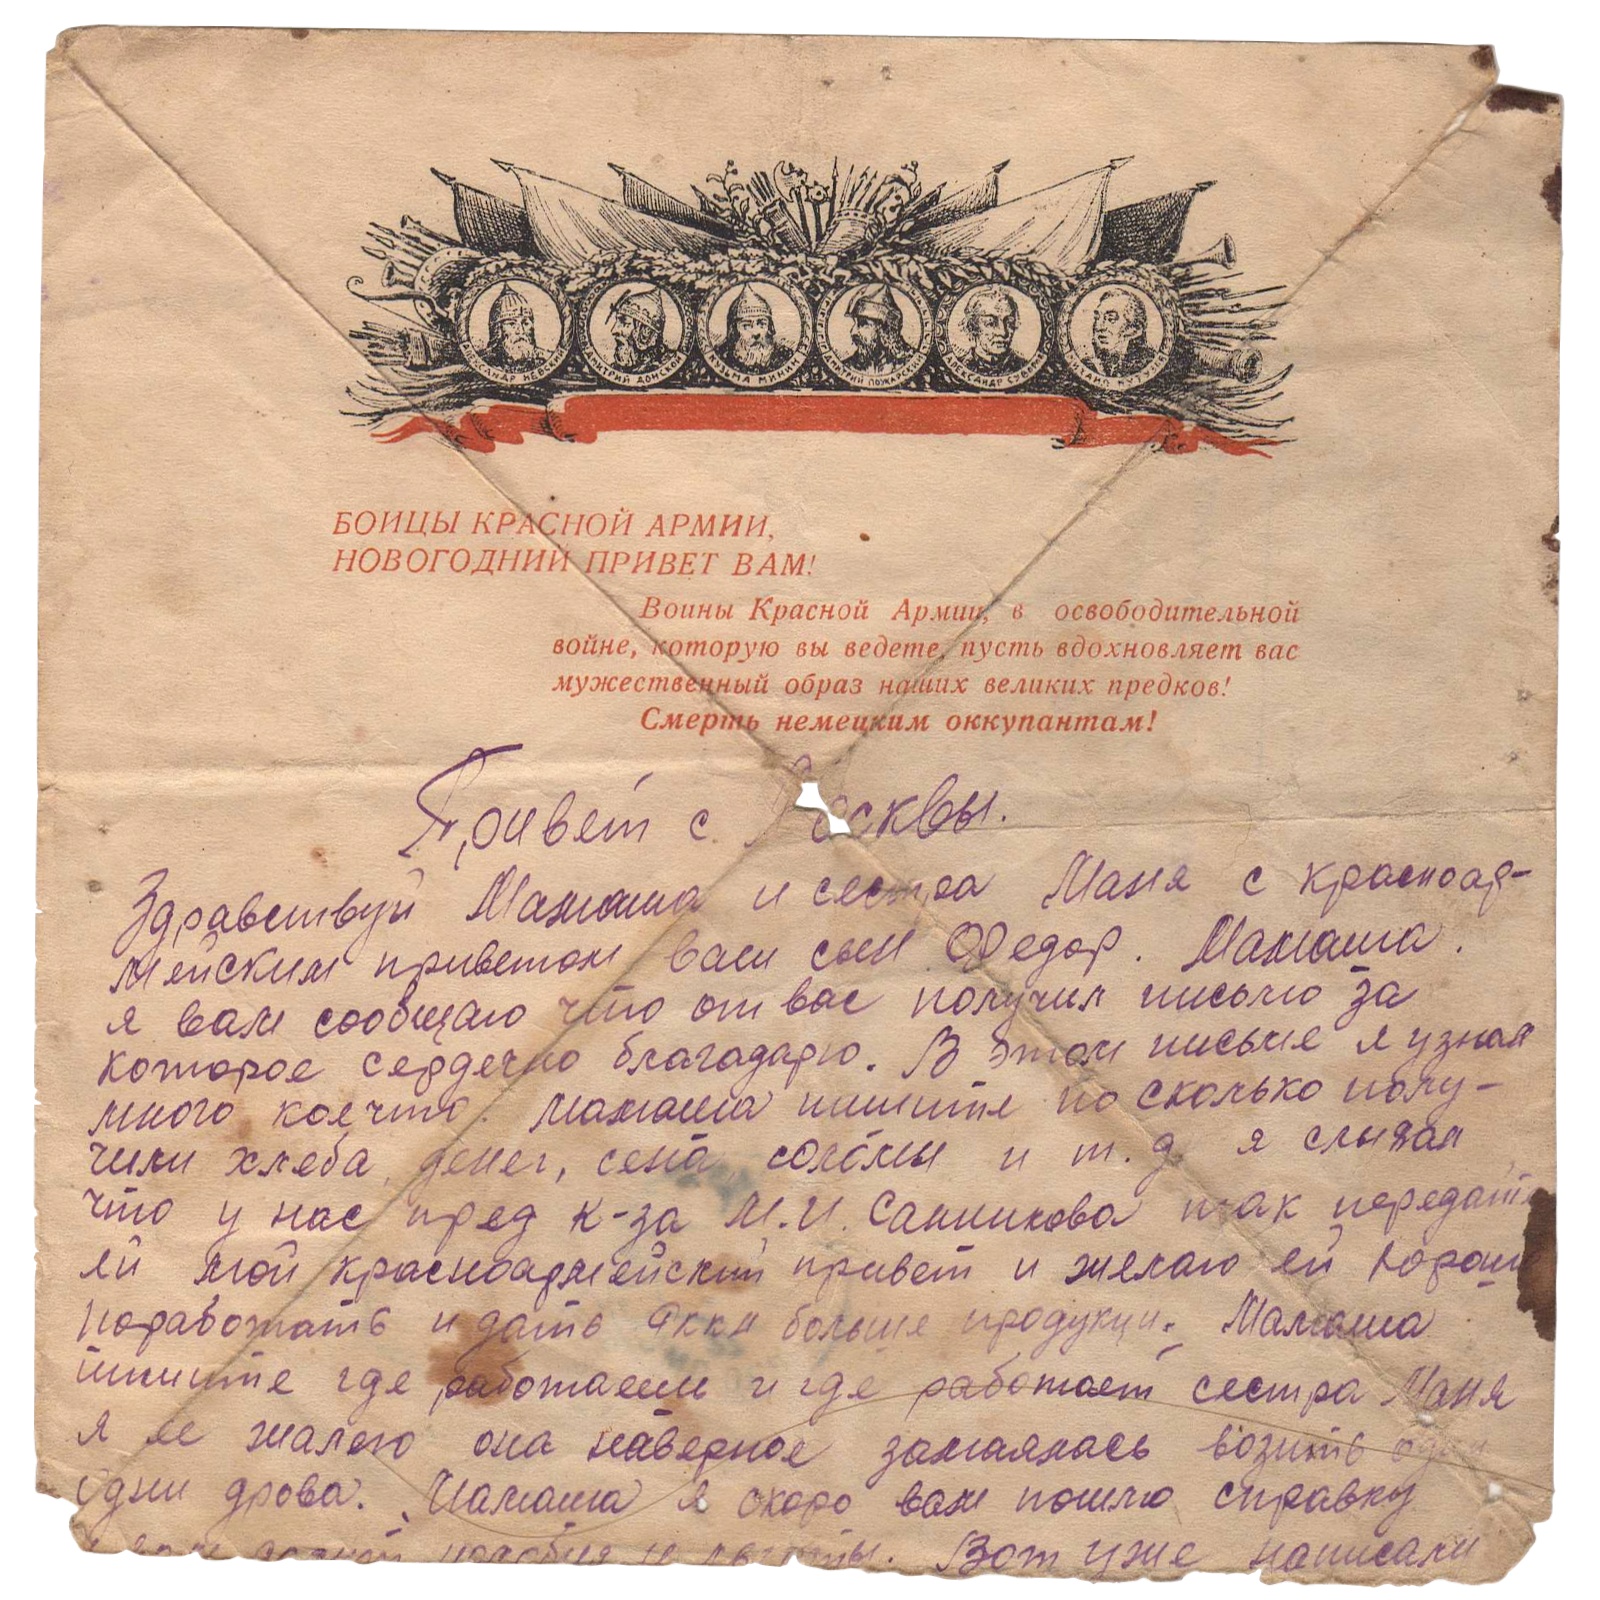 АЛЕКСАНДР НЕВСКИЙ ДМИТРИЙ ДОНСКОЙ КУЗЬМА МИНИН ДМИТРИЙ ПОЖАРСКИЙ АЛЕКСАНДР СУВОРОВ МИХАИЛ КУТУЗОВ
БОЙЦЫ КРАСНОЙ АРМИИ,
НОВОГОДНИЙ ПРИВЕТ ВАМ!
Воины Красной Армии, в освободительной
войне, которую вы ведете, пусть вдохновляет вас
мужественный образ наших великих предков!
Смерть немецким оккупантам!
Привет с Москвы.
Здравствуй Мамаша и сестра Маня с красноар-
мейским приветом ваш сын Федор. Мамаша.
я вам сообщаю что от вас получил письмо за
которое сердечно благадарю. В этом письме я узнал
много коечто. мамаша пишите по сколько полу-
чили хлеба, денег, сена, соломы и т.д. я слыхал
что у нас пред к-за М.И. Санникова так передайте
ей мой красноармейский привет и желаю ей хорошо
поработать и дать РККА больше продукци. Мамаша
пишите где работаешь и где работает сестра Маня
я ее жалею она наверное замаялась возить одни
одни дрова. Мамаша я скоро вам пошлю справку
Вот уже написали